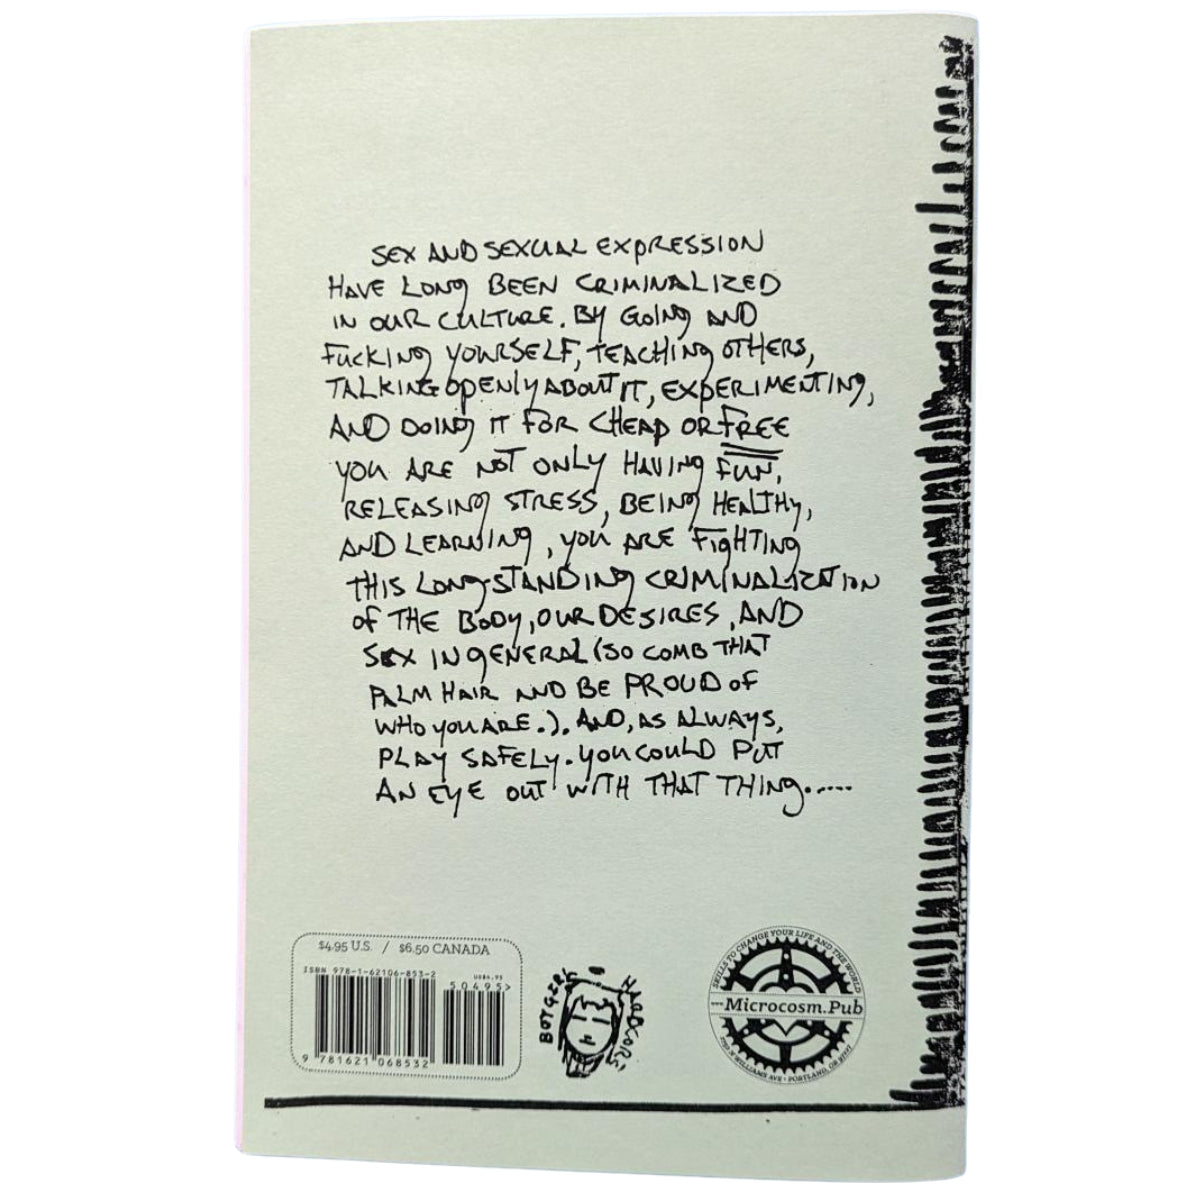 SEX AND SEXUAL EXPRESSION
HAVE LONG BEEN CRIMINALIZED
IN OUR CULTURE. BY GOING AND
FUCKING YOURSELF, TEACHING OTHERS,
TALKING OPENLY ABOUT IT, EXPERIMENTING,
AND DOING IT FOR CHEAP OR FREE
YOU ARE NOT ONLY HAVING FUN,
RELEASING STRESS, BEING HEALTHY,
AND LEARNING, YOU ARE FIGHTING
THIS LONG-STANDING CRIMINALIZATION
OF THE BODY, OUR DESIRES, AND
SEX IN GENERAL (SO COMB THAT
PALM HAIR AND BE PROUD OF
WHO YOU ARE.). AND, AS ALWAYS,
PLAY SAFELY. YOU COULD PUT
AN EYE OUT WITH THAT THING.....
$4.95 U.S. / $6.50 CANADA
ISBN 978-1-62106-853-2
US$4.95
50495>
9 781621 068532
SKILLS TO CHANGE YOUR LIFE AND THE WORLD
Microcosm.Pub
N WILLIAMS AVE • PORTLAND, OR